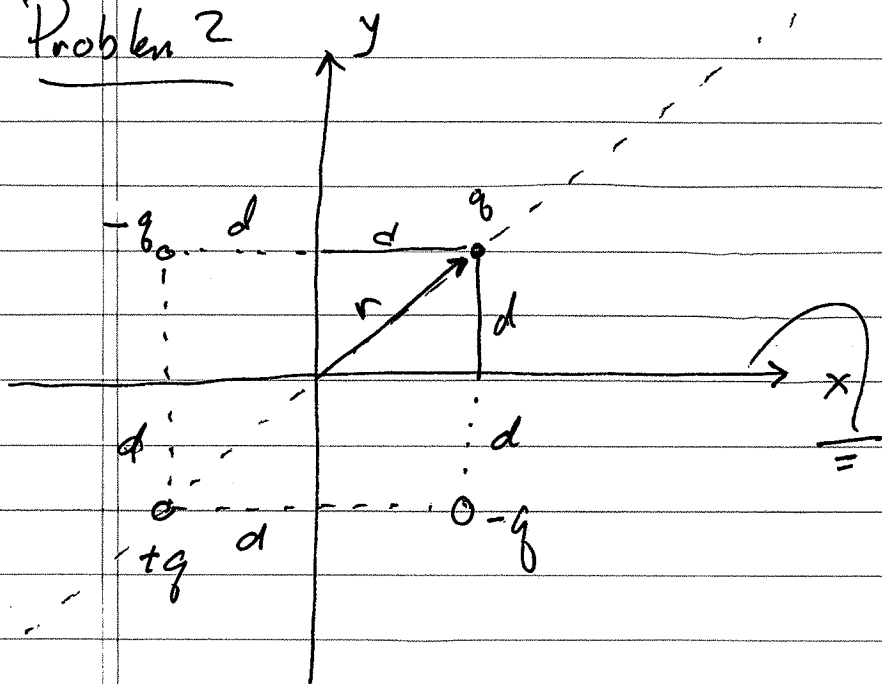 Problem 2
y
q
-q
d
d
r
d
x
d
d
d
-q
+q